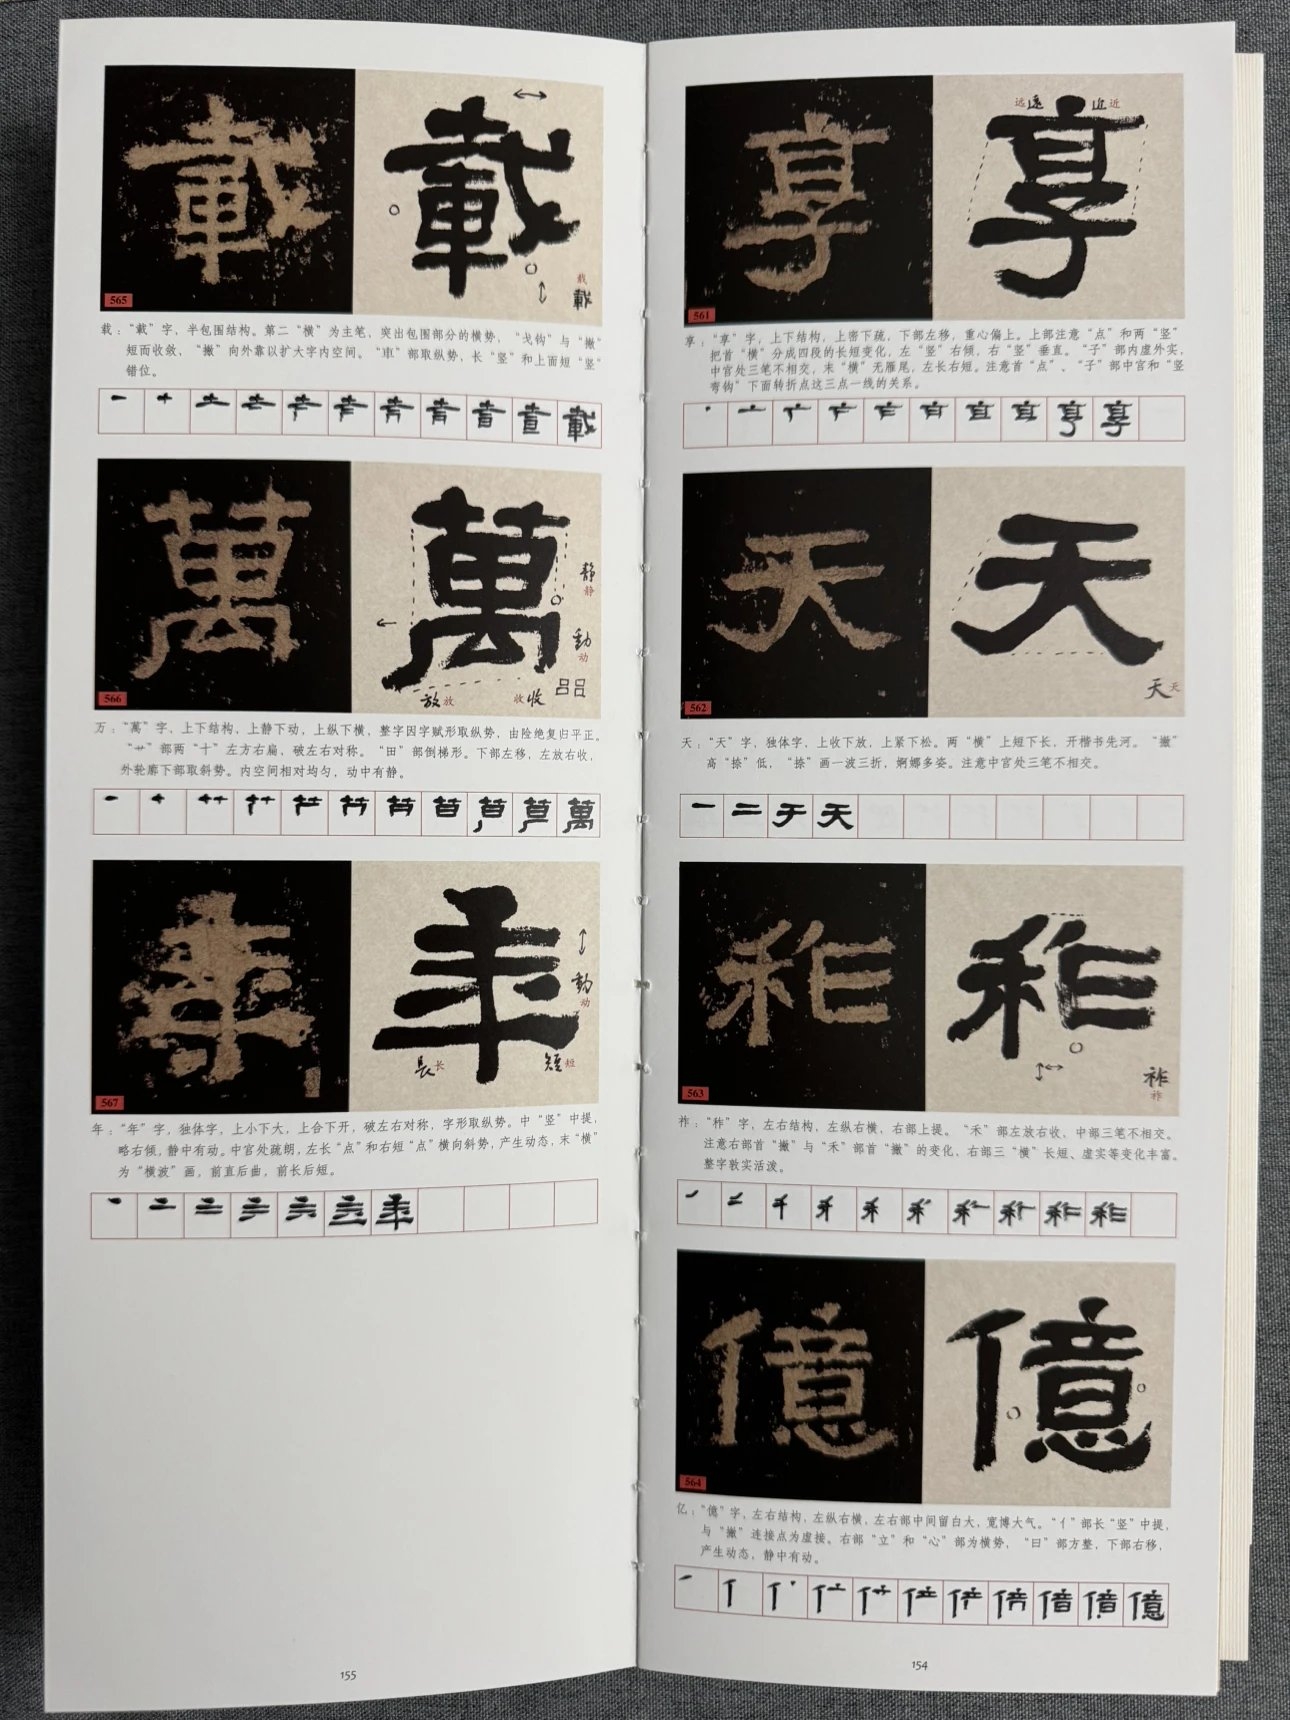 享
远 遠 近 近
561
享：“享”字，上下结构，上密下疏，下部左移，重心偏上。上部注意“点”和两“竖”
把首“横”分成四段的长短变化，左“竖”右倾，右“竖”垂直。“子”部内虚外实，
中宫处三笔不相交，末“横”无雁尾，左长右短。注意首“点”、“子”部中宫和“竖
弯钩”下面转折点这三点一线的关系。
天
562
天 天
天：“天”字，独体字，上收下放，上紧下松。两“横”上短下长，开楷书先河。“撇”
高“捺”低，“捺”画一波三折，婀娜多姿。注意中宫处三笔不相交。
秨
563
祚
祚
祚：“秨”字，左右结构，左纵右横，右部上提。“禾”部左放右收，中部三笔不相交。
注意右部首“撇”与“禾”部首“撇”的变化，右部三“横”长短、虚实等变化丰富。
整字敦实活泼。
億
564
亿：“億”字，左右结构，左纵右横，左右部中间留白大，宽博大气。“亻”部长“竖”中提，
与“撇”连接点为虚接。右部“立”和“心”部为横势，“曰”部方整，下部右移，
产生动态，静中有动。
154
載
565
载
載
载：“載”字，半包围结构。第二“横”为主笔，突出包围部分的横势，“戈钩”与“撇”
短而收敛，“撇”向外靠以扩大字内空间。“車”部取纵势，长“竖”和上面短“竖”
错位。
萬
566
静
静
動
动
放 放 收 收
吕吕
万：“萬”字，上下结构，上静下动，上纵下横，整字因字赋形取纵势，由险绝复归平正。
“艹”部两“十”左方右扁，破左右对称。“田”部倒梯形。下部左移，左放右收，
外轮廓下部取斜势。内空间相对均匀，动中有静。
年
567
動
动
長 长 短 短
年：“年”字，独体字，上小下大，上合下开，破左右对称，字形取纵势。中“竖”中提，
略右倾，静中有动。中宫处疏朗，左长“点”和右短“点”横向斜势，产生动态，末“横”
为“横波”画，前直后曲，前长后短。
155